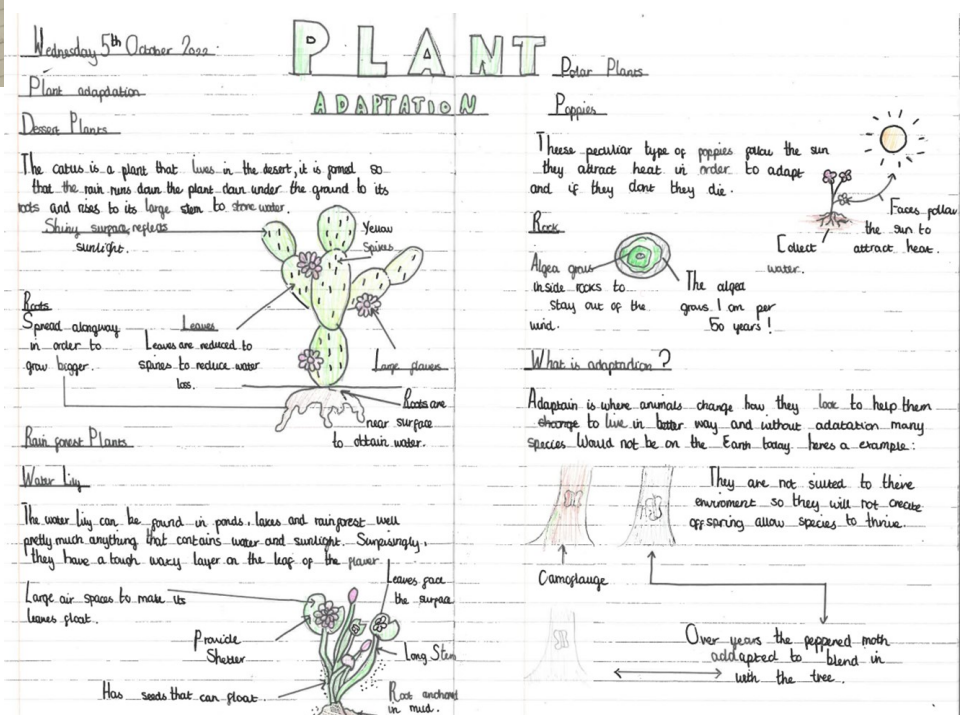 Wednesday 5th October 2022
PLANT
ADAPTATION
Plant adapdation
Dessert Plants
The catus is a plant that lives in the desert, it is formed so
that the rain runs down the plant down under the ground to its
roots and rises to its large stem to store water.
Shiny surface, reflects
sunlight.
Yellow
spikes.
Roots
Spread alongway
in order to
grow bigger.
Leaves
Leaves are reduced to
spines to reduce water
loss.
Large flowers
Roots are
near surface
to obtain water.
Rain forest Plants
Water Lily
The water lily can be found in ponds, lakes and rainforest well
pretty much anything that contains water and sunlight. Surpisingly,
they have a tough waxy layer on the leaf of the flower
Large air spaces to make its
leaves float.
Leaves face
the surface
Provide
Shelter
Long Stem
Has seeds that can float.
Root anchord
in mud.
Polar Plants
Poppies
Theese peculiar type of poppies follow the sun
they attract heat in order to adapt
and if they dont they die.
Faces follow
the sun to
attract heat.
Collect
water.
Rock
Algea grows
inside rocks to
stay out of the
wind.
The algea
grows 1 cm per
50 years!
What is adaptadion?
Adaptain is where animals change how they look to help them
change to live in better way and without adatation many
species Would not be on the Earth today. heres a example:
They are not suited to there
enviroment so they will not create
offspring allow species to thrive.
Camoflauge
Over years the peppered moth
addapted to blend in
with the tree.